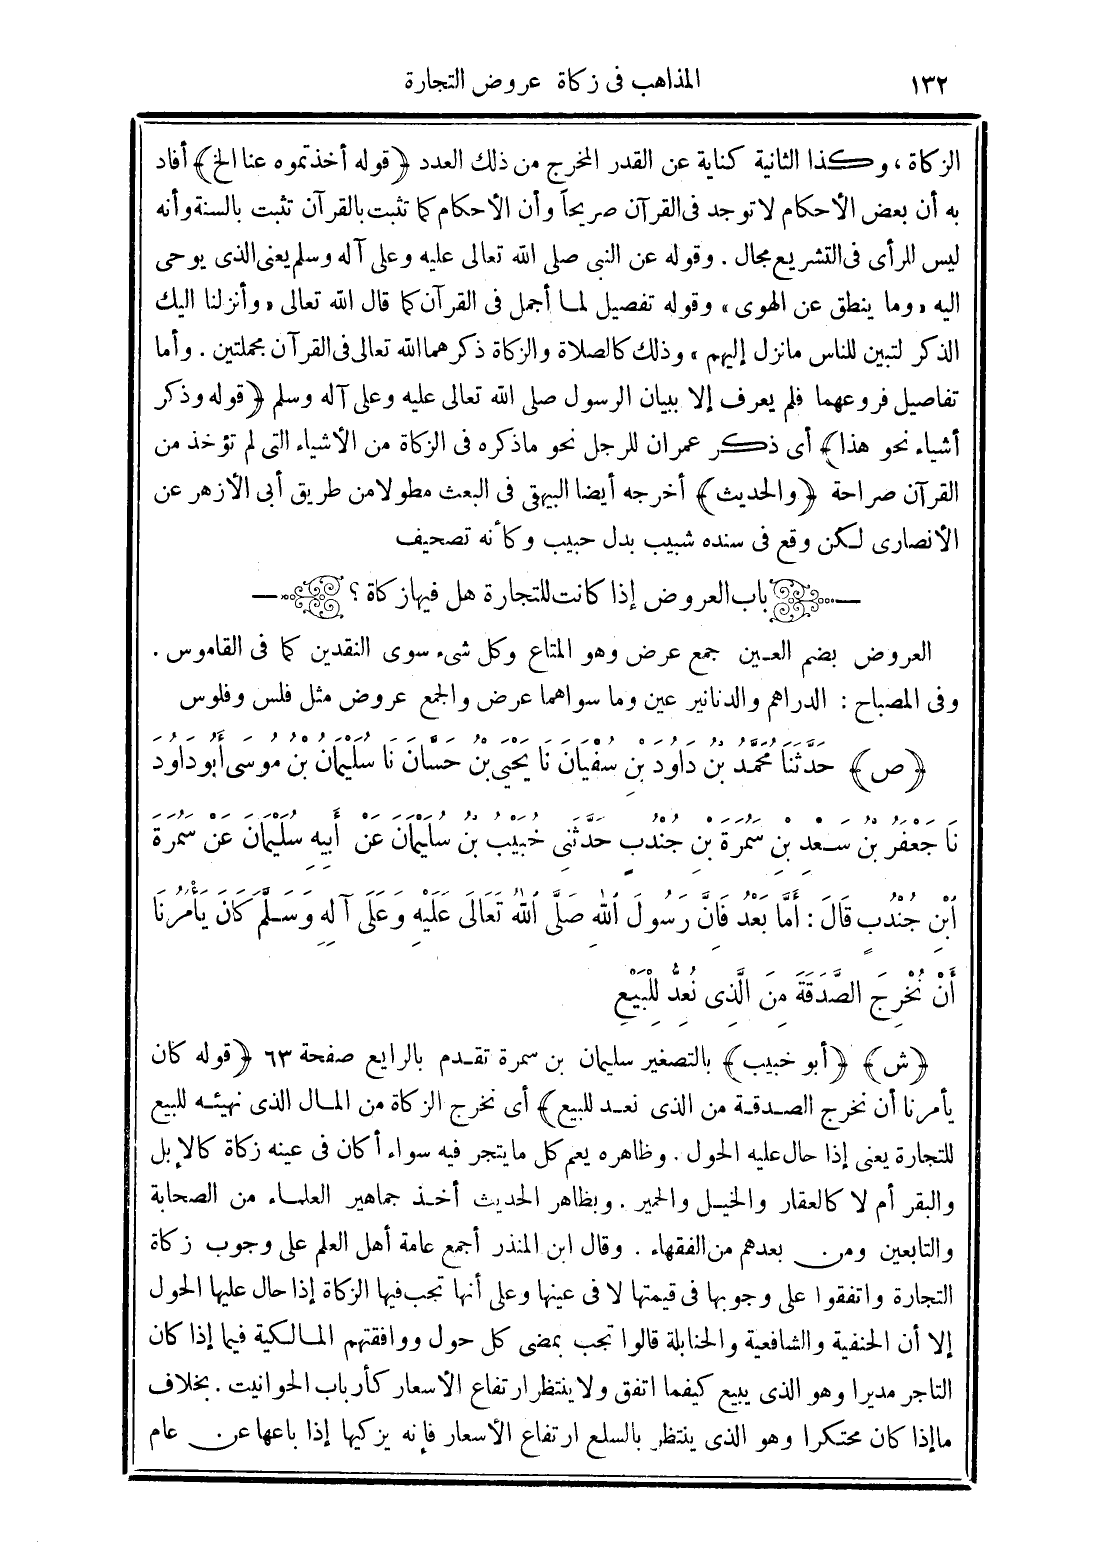 ١٣٢ المذاهب فى زكاة عروض التجارة
الزكاة ، وكذا الثانية كناية عن القدر المخرج من ذلك العدد ﴿قوله أخذتموه عنا الخ﴾ أفاد
به أن بعض الأحكام لا توجد فى القرآن صريحاً وأن الأحكام كما تثبت بالقرآن تثبت بالسنة وأنه
ليس للرأى فى التشريع مجال . وقوله عن النبى صلى الله تعالى عليه وعلى آله وسلم يعنى الذى يوحى
اليه «وما ينطق عن الهوى» وقوله تفصيل لما أجمل فى القرآن كما قال الله تعالى «وأنزلنا اليك
الذكر لتبين للناس مانزل إليهم» وذلك كالصلاة والزكاة ذكرهما الله تعالى فى القرآن مجملتين . وأما
تفاصيل فروعهما فلم يعرف إلا ببيان الرسول صلى الله تعالى عليه وعلى آله وسلم ﴿قوله وذكر
أشياء نحو هذا﴾ أى ذكر عمران للرجل نحو ماذكره فى الزكاة من الأشياء التى لم تؤخذ من
القرآن صراحة ﴿والحديث﴾ أخرجه أيضا البيهقى فى البعث مطولا من طريق أبى الأزهر عن
الأنصارى لكن وقع فى سنده شبيب بدل حبيب وكأنه تصحيف
باب العروض إذا كانت للتجارة هل فيها زكاة ؟
العروض بضم العين جمع عرض وهو المتاع وكل شىء سوى النقدين كما فى القاموس .
وفى المصباح : الدراهم والدنانير عين وما سواهما عرض والجمع عروض مثل فلس وفلوس
﴿ص﴾ حَدَّثَنَا مُحَمَّدُ بْنُ دَاوُدَ بْنِ سُفْيَانَ نَا يَحْيَى بْنُ حَسَّانَ نَا سُلَيْمَانُ بْنُ مُوسَى أَبُو دَاوُدَ
نَا جَعْفَرُ بْنُ سَعْدِ بْنِ سَمُرَةَ بْنِ جُنْدُبٍ حَدَّثَنِى خُبَيْبُ بْنُ سُلَيْمَانَ عَنْ أَبِيهِ سُلَيْمَانَ عَنْ سَمُرَةَ
ابْنِ جُنْدُبٍ قَالَ : أَمَّا بَعْدُ فَإِنَّ رَسُولَ اللهِ صَلَّى اللهُ تَعَالَى عَلَيْهِ وَعَلَى آلِهِ وَسَلَّمَ كَانَ يَأْمُرُنَا
أَنْ نُخْرِجَ الصَّدَقَةَ مِنَ الَّذِى نُعِدُّ لِلْبَيْعِ
﴿ش﴾ ﴿أبو خبيب﴾ بالتصغير سليمان بن سمرة تقدم بالرابع صفحة ٦٣ ﴿قوله كان
يأمرنا أن نخرج الصدقة من الذى نعد للبيع﴾ أى نخرج الزكاة من المال الذى نهيئه للبيع
للتجارة يعنى إذا حال عليه الحول . وظاهره يعم كل مايتجر فيه سواء أكان فى عينه زكاة كالإبل
والبقر أم لا كالعقار والخيل والحمير . وبظاهر الحديث أخذ جماهير العلماء من الصحابة
والتابعين ومن بعدهم من الفقهاء . وقال ابن المنذر أجمع عامة أهل العلم على وجوب زكاة
التجارة واتفقوا على وجوبها فى قيمتها لا فى عينها وعلى أنها تجب فيها الزكاة إذا حال عليها الحول
إلا أن الحنفية والشافعية والحنابلة قالوا تجب بمضى كل حول ووافقتهم المالكية فيما إذا كان
التاجر مديرا وهو الذى يبيع كيفما اتفق ولا ينتظر ارتفاع الأسعار كأرباب الحوانيت . بخلاف
ماإذا كان محتكرا وهو الذى ينتظر بالسلع ارتفاع الأسعار فإنه يزكيها إذا باعها عن عام